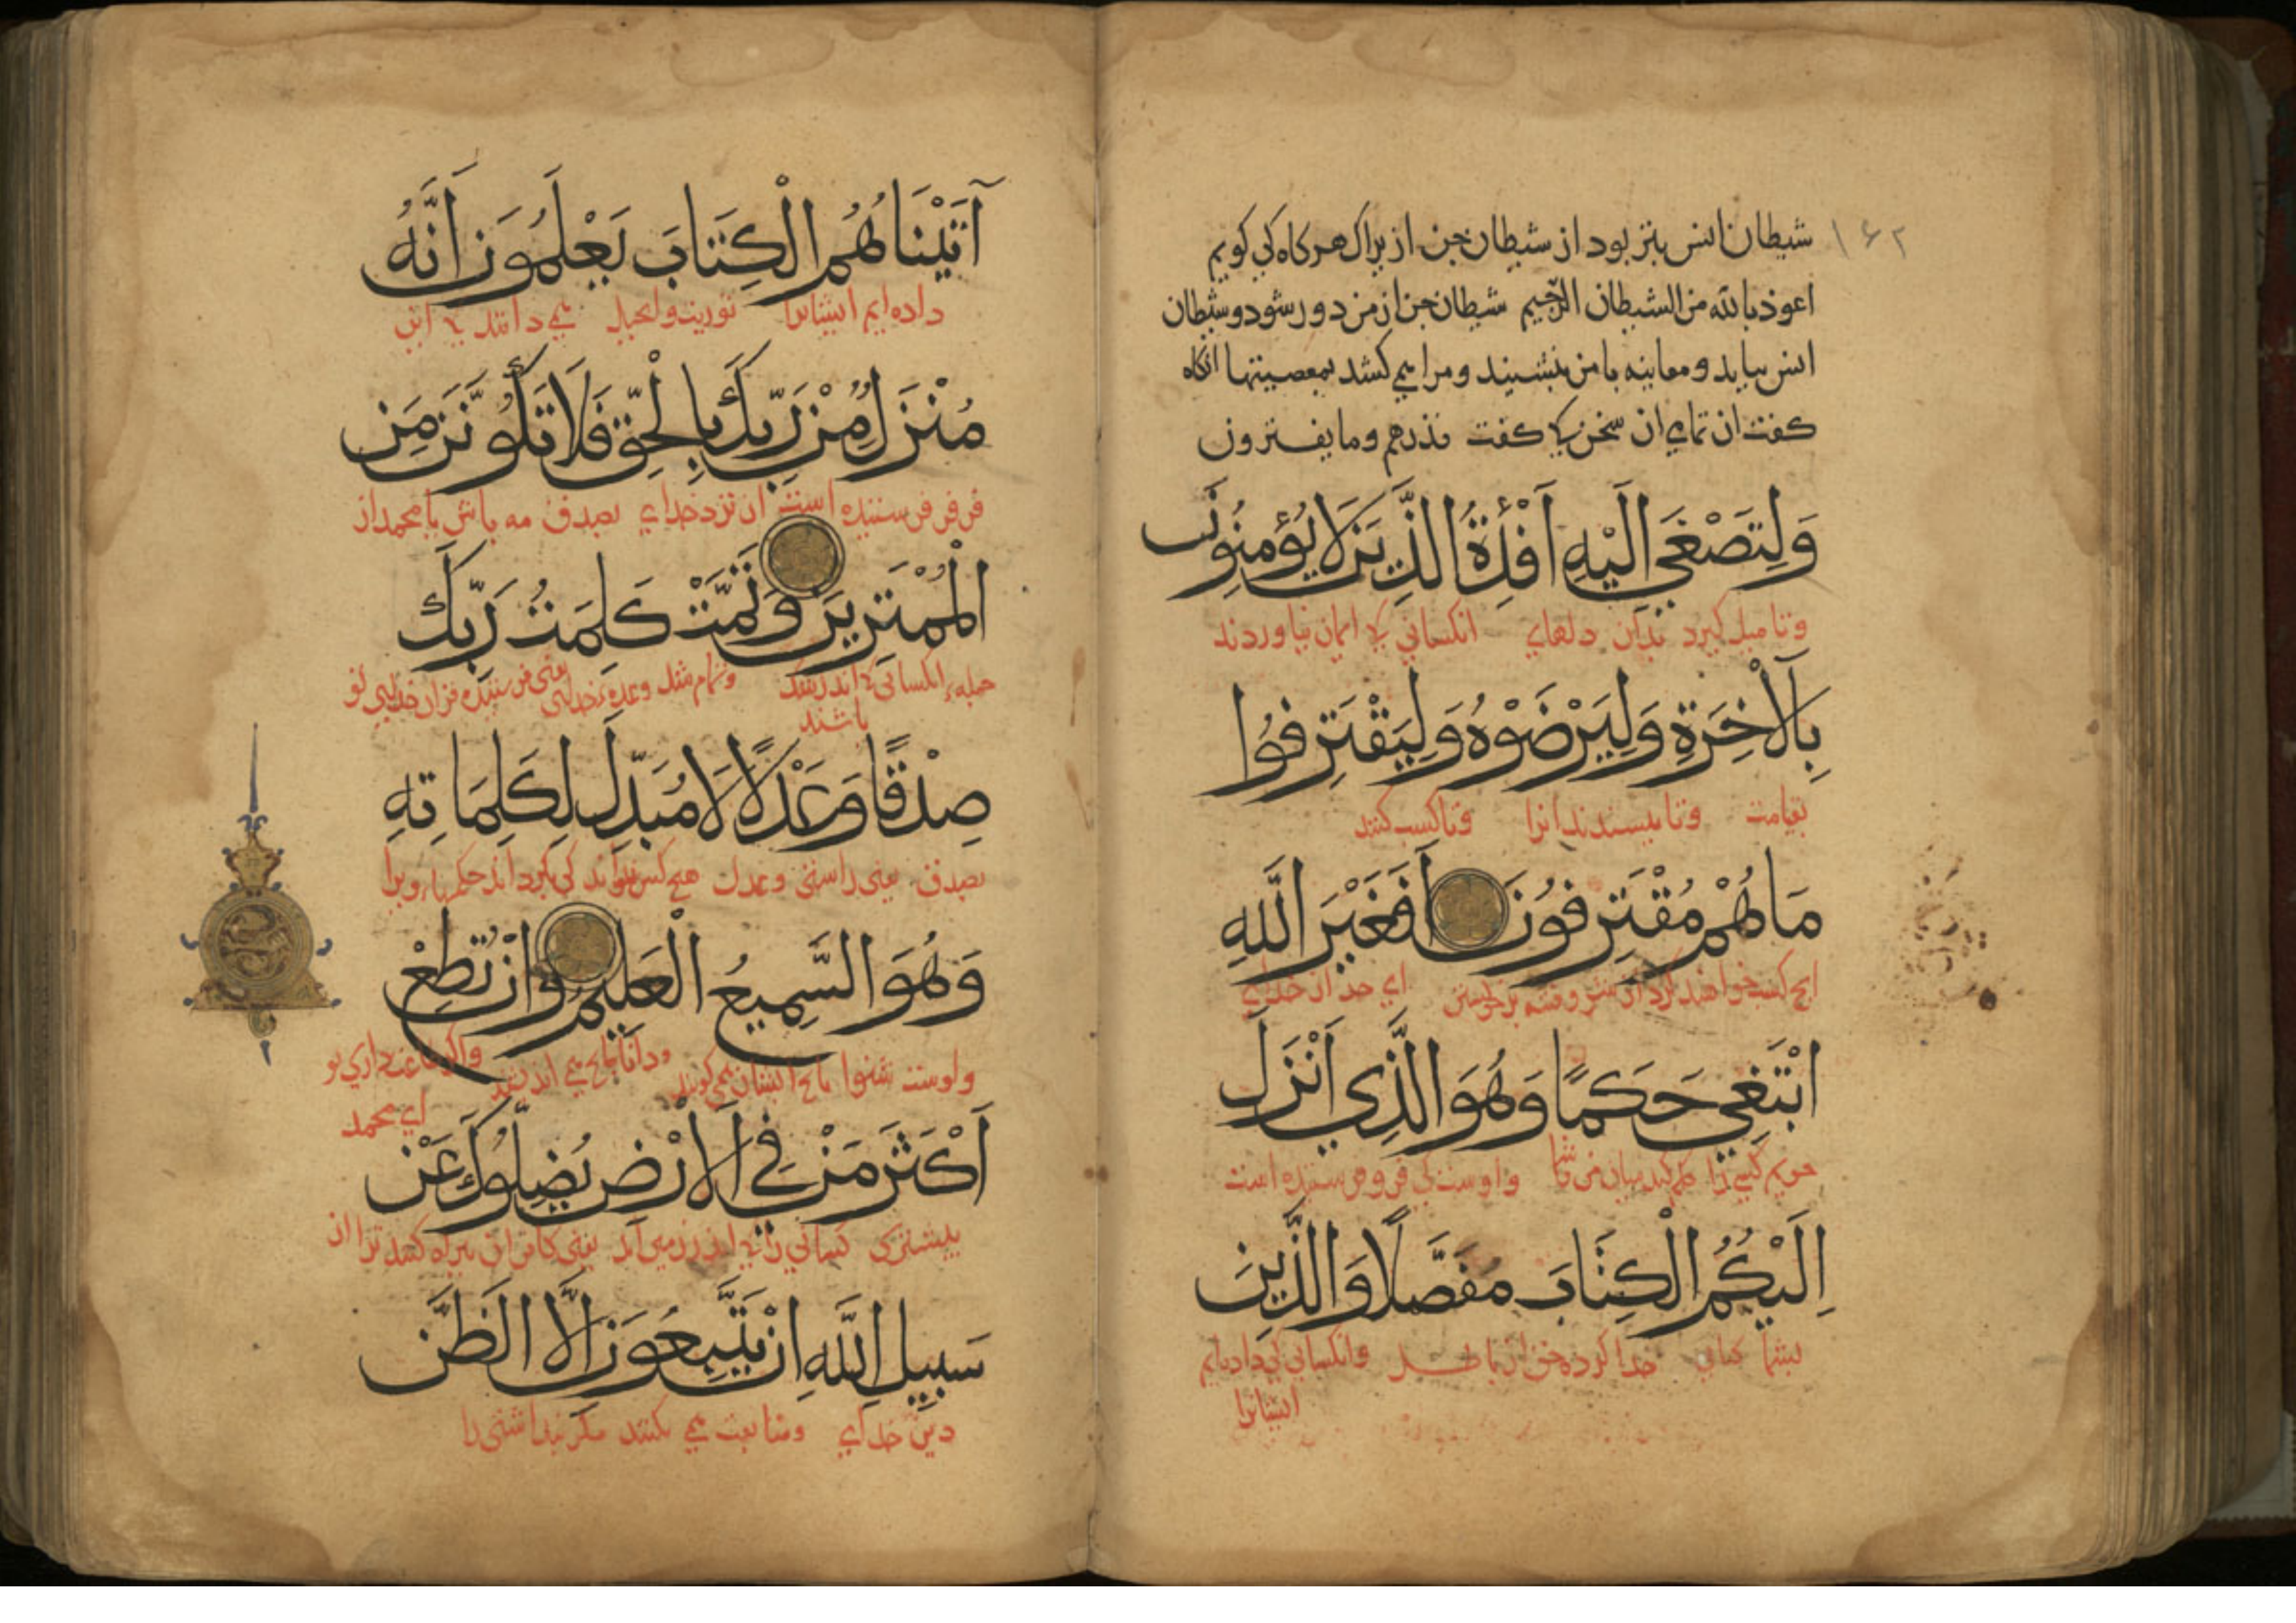 ۱۶۲
شیطان انس بتر بود از شیطان جن از برا ک هر کاه کی کویم
اعوذ بالله من الشیطان الرجیم شیطان جن از من دور شود و شیطان
انس بیاید و معاینه با من بنشیند و مرا می کشد بمعصیتها انکاه
کفت ان تمای ان سخن کی کفت فذرهم وما یفترون
وَلِتَصْغَى اِلَيْهِ اَفْئِدَةُ الَّذِينَ لَا يُؤْمِنُونَ
وتا میل کیرد بدین دلهای انکسانی کی ایمان نیاوردند
بِالْآخِرَةِ وَلِيَرْضَوْهُ وَلِيَقْتَرِفُوا
بقیامت وتا بپسندند انرا وتا کسب کنند
مَا هُمْ مُقْتَرِفُونَ اَفَغَيْرَ اللَّهِ
ای جد از خدای
ابْتَغِي حَكَمًا وَهُوَ الَّذِي اَنْزَلَ
واوست کی فرو فرستنده است
اِلَيْكُمُ الْكِتَابَ مُفَصَّلًا وَالَّذِينَ
بشما کتاب جدا کرده حق از باطل وانکسانی کی داده‌ایم
ایشانرا
آتَيْنَاهُمُ الْكِتَابَ يَعْلَمُونَ اَنَّهُ
داده ایم ایشانرا توریت وانجیل می دانند کی این
مُنْزَلٌ مِنْ رَبِّكَ بِالْحَقِّ فَلَا تَكُونَنَّ مِنَ
فرستنده است از نزد خدای بصدق مه باش یا محمد از
الْمُمْتَرِينَ وَتَمَّتْ كَلِمَتُ رَبِّكَ
جمله انکسانی کی اندر شک وتمام شد وعده خدای
باشند
صِدْقًا وَعَدْلًا لَا مُبَدِّلَ لِكَلِمَاتِهِ
بصدق یعنی راستی وعدل هیچ کس نتواند کی بکرداند حکمهاء ویرا
وَهُوَ السَّمِيعُ الْعَلِيمُ وَاِنْ تُطِعْ
واوست شنوا بانچ ایشان می کویند ودانا بانچ می اندیشند واکر طاعت داری تو
ای محمد
اَكْثَرَ مَنْ فِي الْاَرْضِ يُضِلُّوكَ عَنْ
بیشترک کسانی را کی اندر زمین اند یعنی کافران بیراه کنند ترا از
سَبِيلِ اللَّهِ اِنْ يَتَّبِعُونَ اِلَّا الظَّنَّ
دین خدای ومتابعت می نکنند مکر پنداشتی را